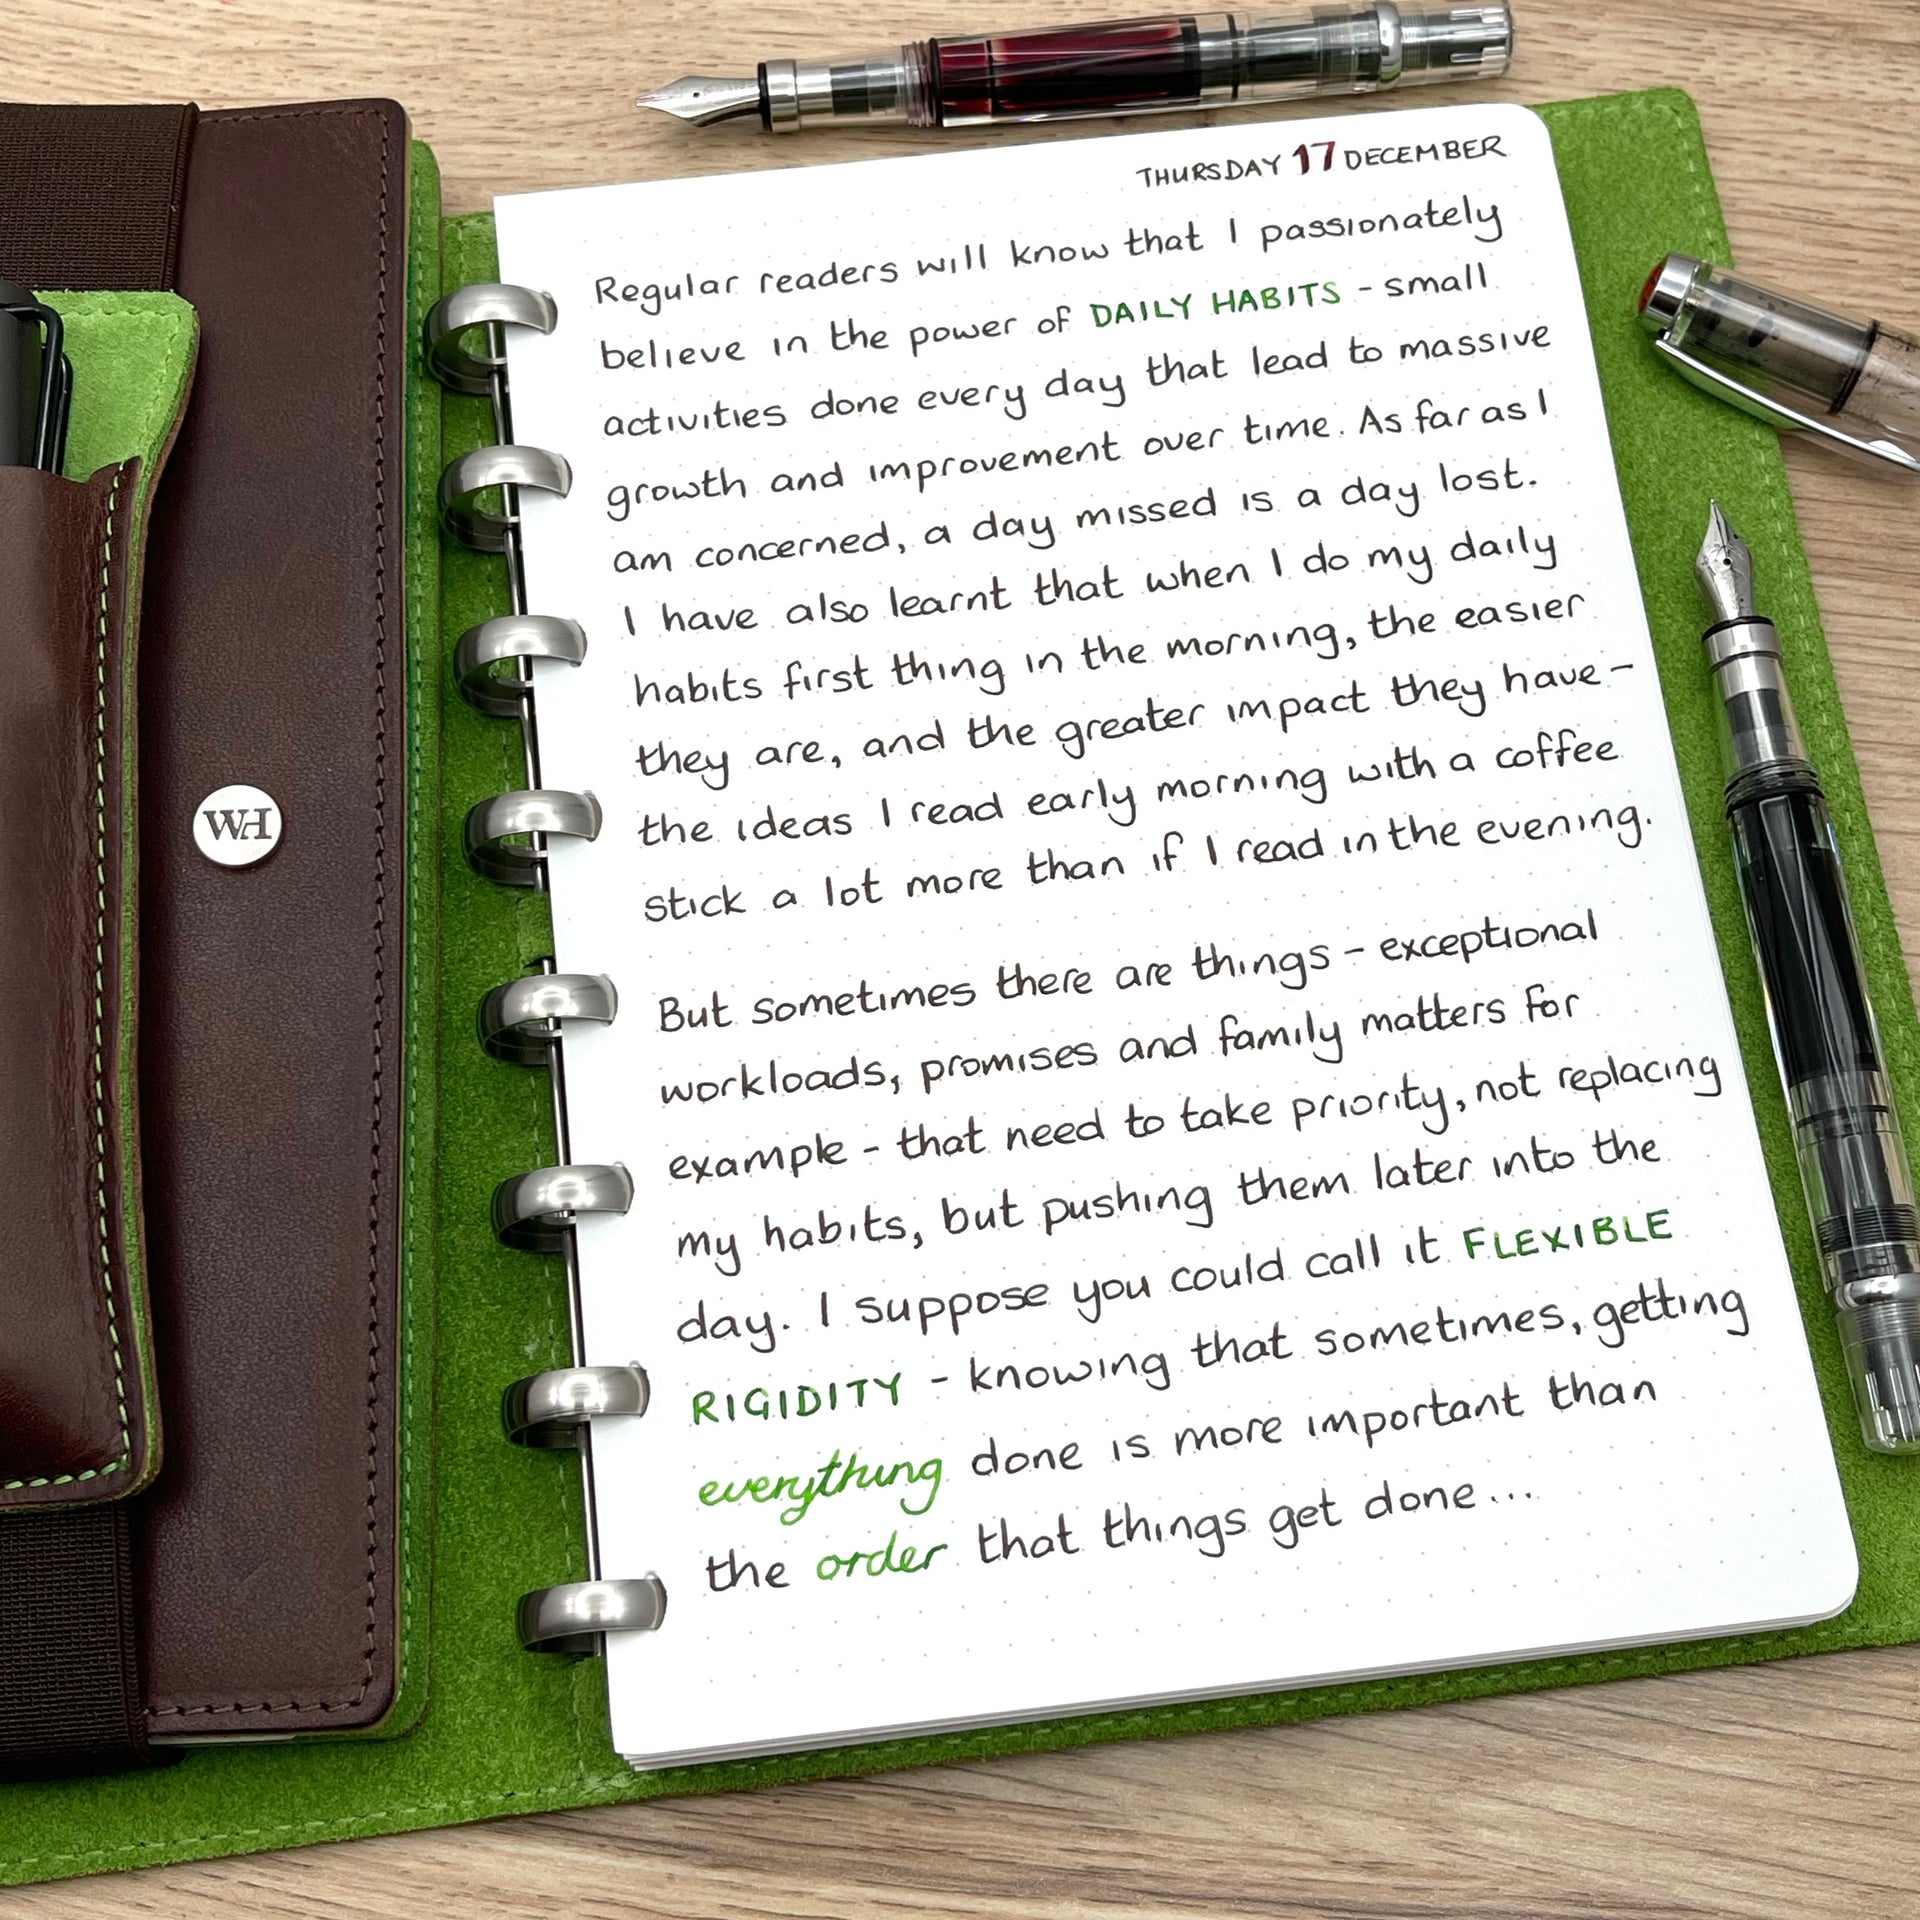 THURSDAY 17 DECEMBER
Regular readers will know that I passionately
believe in the power of DAILY HABITS - small
activities done every day that lead to massive
growth and improvement over time. As far as I
am concerned, a day missed is a day lost.
I have also learnt that when I do my daily
habits first thing in the morning, the easier
they are, and the greater impact they have -
the ideas I read early morning with a coffee
stick a lot more than if I read in the evening.
But sometimes there are things - exceptional
workloads, promises and family matters for
example - that need to take priority, not replacing
my habits, but pushing them later into the
day. I suppose you could call it FLEXIBLE
RIGIDITY - knowing that sometimes, getting
everything done is more important than
the order that things get done...
WH